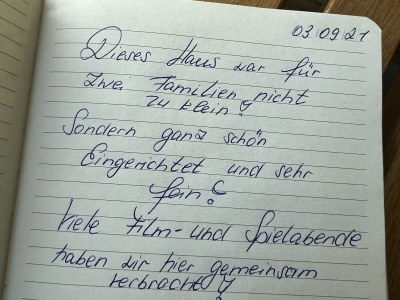 03|09|21
Dieses Haus war für
zwei Familien nicht
zu klein!
Sondern ganz schön
Eingerichtet und sehr
fein!
Viele Film- und Spielabende
haben wir hier gemeinsam
verbracht!